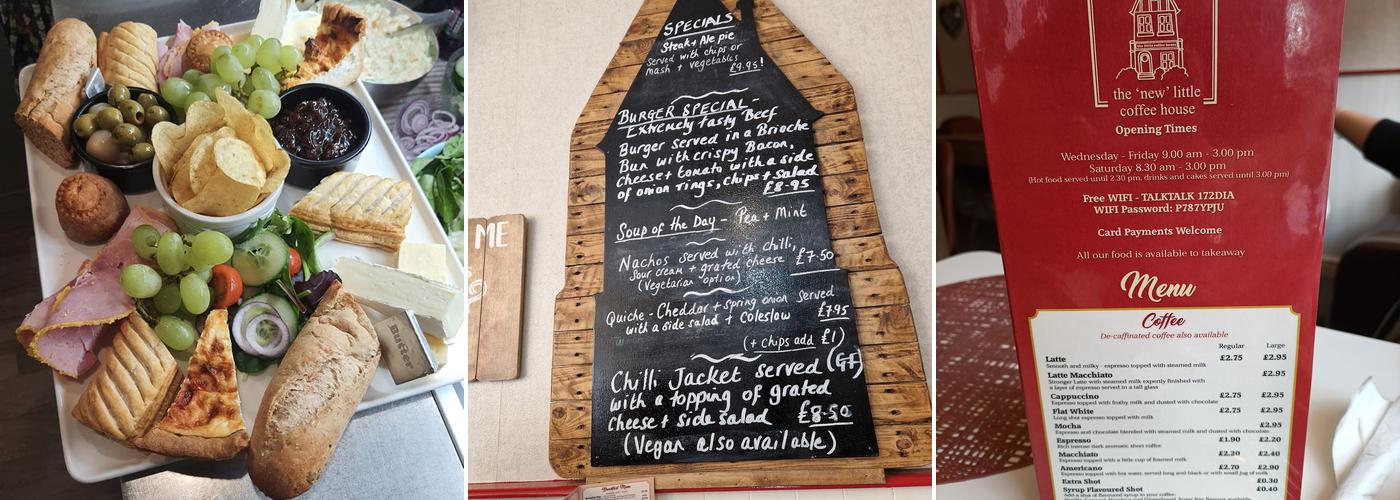 Butter
ME
SPECIALS
Steak + Ale pie
served with chips or
mash + vegetables
£9.95!
BURGER SPECIAL -
Extremely tasty Beef
Burger served in a Brioche
Bun with crispy Bacon,
cheese + tomato with a side
of onion rings, chips + salad
£8-95
Soup of the Day - Pea + Mint
Nachos served with chilli,
sour cream + grated cheese £7-50
(Vegetarian option)
Quiche - Cheddar + Spring onion served
with a side salad + coleslow £7.95
(+ chips add £1)
Chilli Jacket served (GF)
with a topping of grated
cheese + side salad £8-50
(Vegan also available)
the little coffee house
the 'new' little
coffee house
Opening Times
Wednesday - Friday 9.00 am - 3.00 pm
Saturday 8.30 am - 3.00 pm
(Hot food served until 2.30 pm, drinks and cakes served until 3.00 pm)
Free WIFI - TALKTALK 172DIA
WIFI Password: P787YPJU
Card Payments Welcome
All our food is available to takeaway
Menu
Coffee
De-caffinated coffee also available
Regular Large
Latte £2.75 £2.95
Smooth and milky - espresso topped with steamed milk
Latte Macchiato £2.95
Stronger Latte with steamed milk expertly finished with
a layer of espresso served in a tall glass
Cappuccino £2.75 £2.95
Espresso topped with frothy milk and dusted with chocolate
Flat White £2.75 £2.95
Long shot espresso topped with milk
Mocha £2.95
Espresso and chocolate blended with steamed milk and dusted with chocolate
Espresso £1.90 £2.20
Rich intense dark aromatic short coffee
Macchiato £2.20 £2.40
Espresso topped with a little cup of foamed milk
Americano £2.70 £2.90
Espresso topped with hot water, served long and black or with small jug of milk
Extra Shot £0.30
Syrup Flavoured Shot £0.40
Add a shot of flavoured syrup to your coffee.